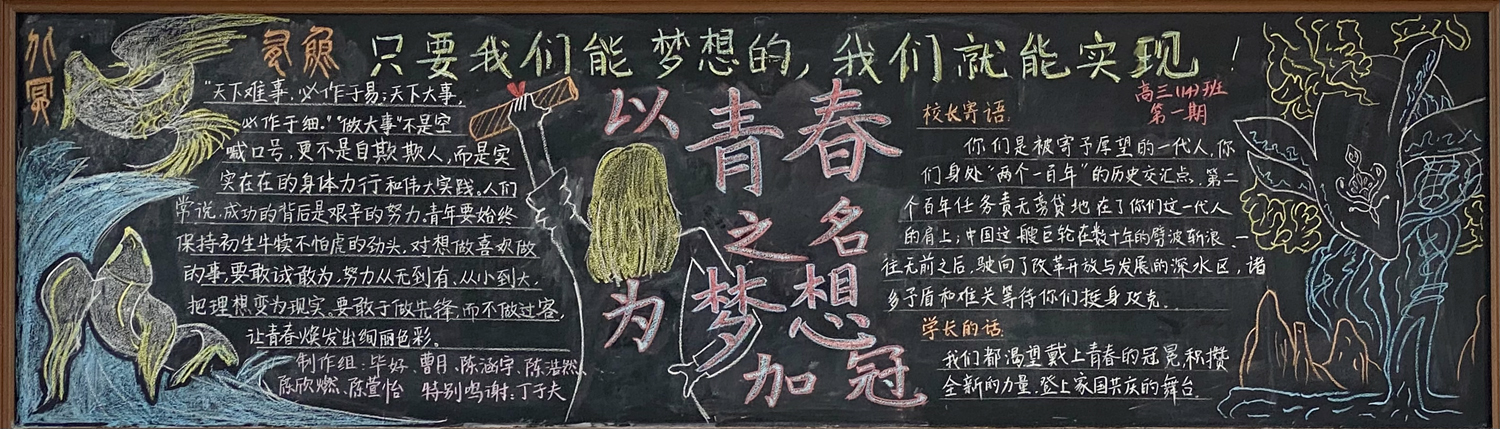 只要我们能梦想的，我们就能实现！
“天下难事，必作于易；天下大事，
必作于细。”“做大事”不是空
喊口号，更不是自欺欺人，而是实
实在在的身体力行和伟大实践。人们
常说，成功的背后是艰辛的努力，青年要始终
保持初生牛犊不怕虎的劲头，对想做喜欢做
的事，要敢试敢为，努力从无到有、从小到大，
把理想变为现实。要敢于做先锋，而不做过客，
让青春焕发出绚丽色彩。
制作组：毕好、曹月、陈涵宇、陈浩然、
陈欣燃、陈萱怡 特别鸣谢：丁于夫
以青春之名
为梦想加冠
高三(14)班
第一期
校长寄语：
你们是被寄予厚望的一代人，你
们身处“两个一百年”的历史交汇点，第二
个百年任务责无旁贷地在了你们这一代人
的肩上；中国这一艘巨轮在数十年的劈波斩浪、一
往无前之后，驶向了改革开放与发展的深水区，诸
多矛盾和难关等待你们挺身攻克。
学长的话：
我们都渴望戴上青春的冠冕，积攒
全新的力量，登上家国共庆的舞台。